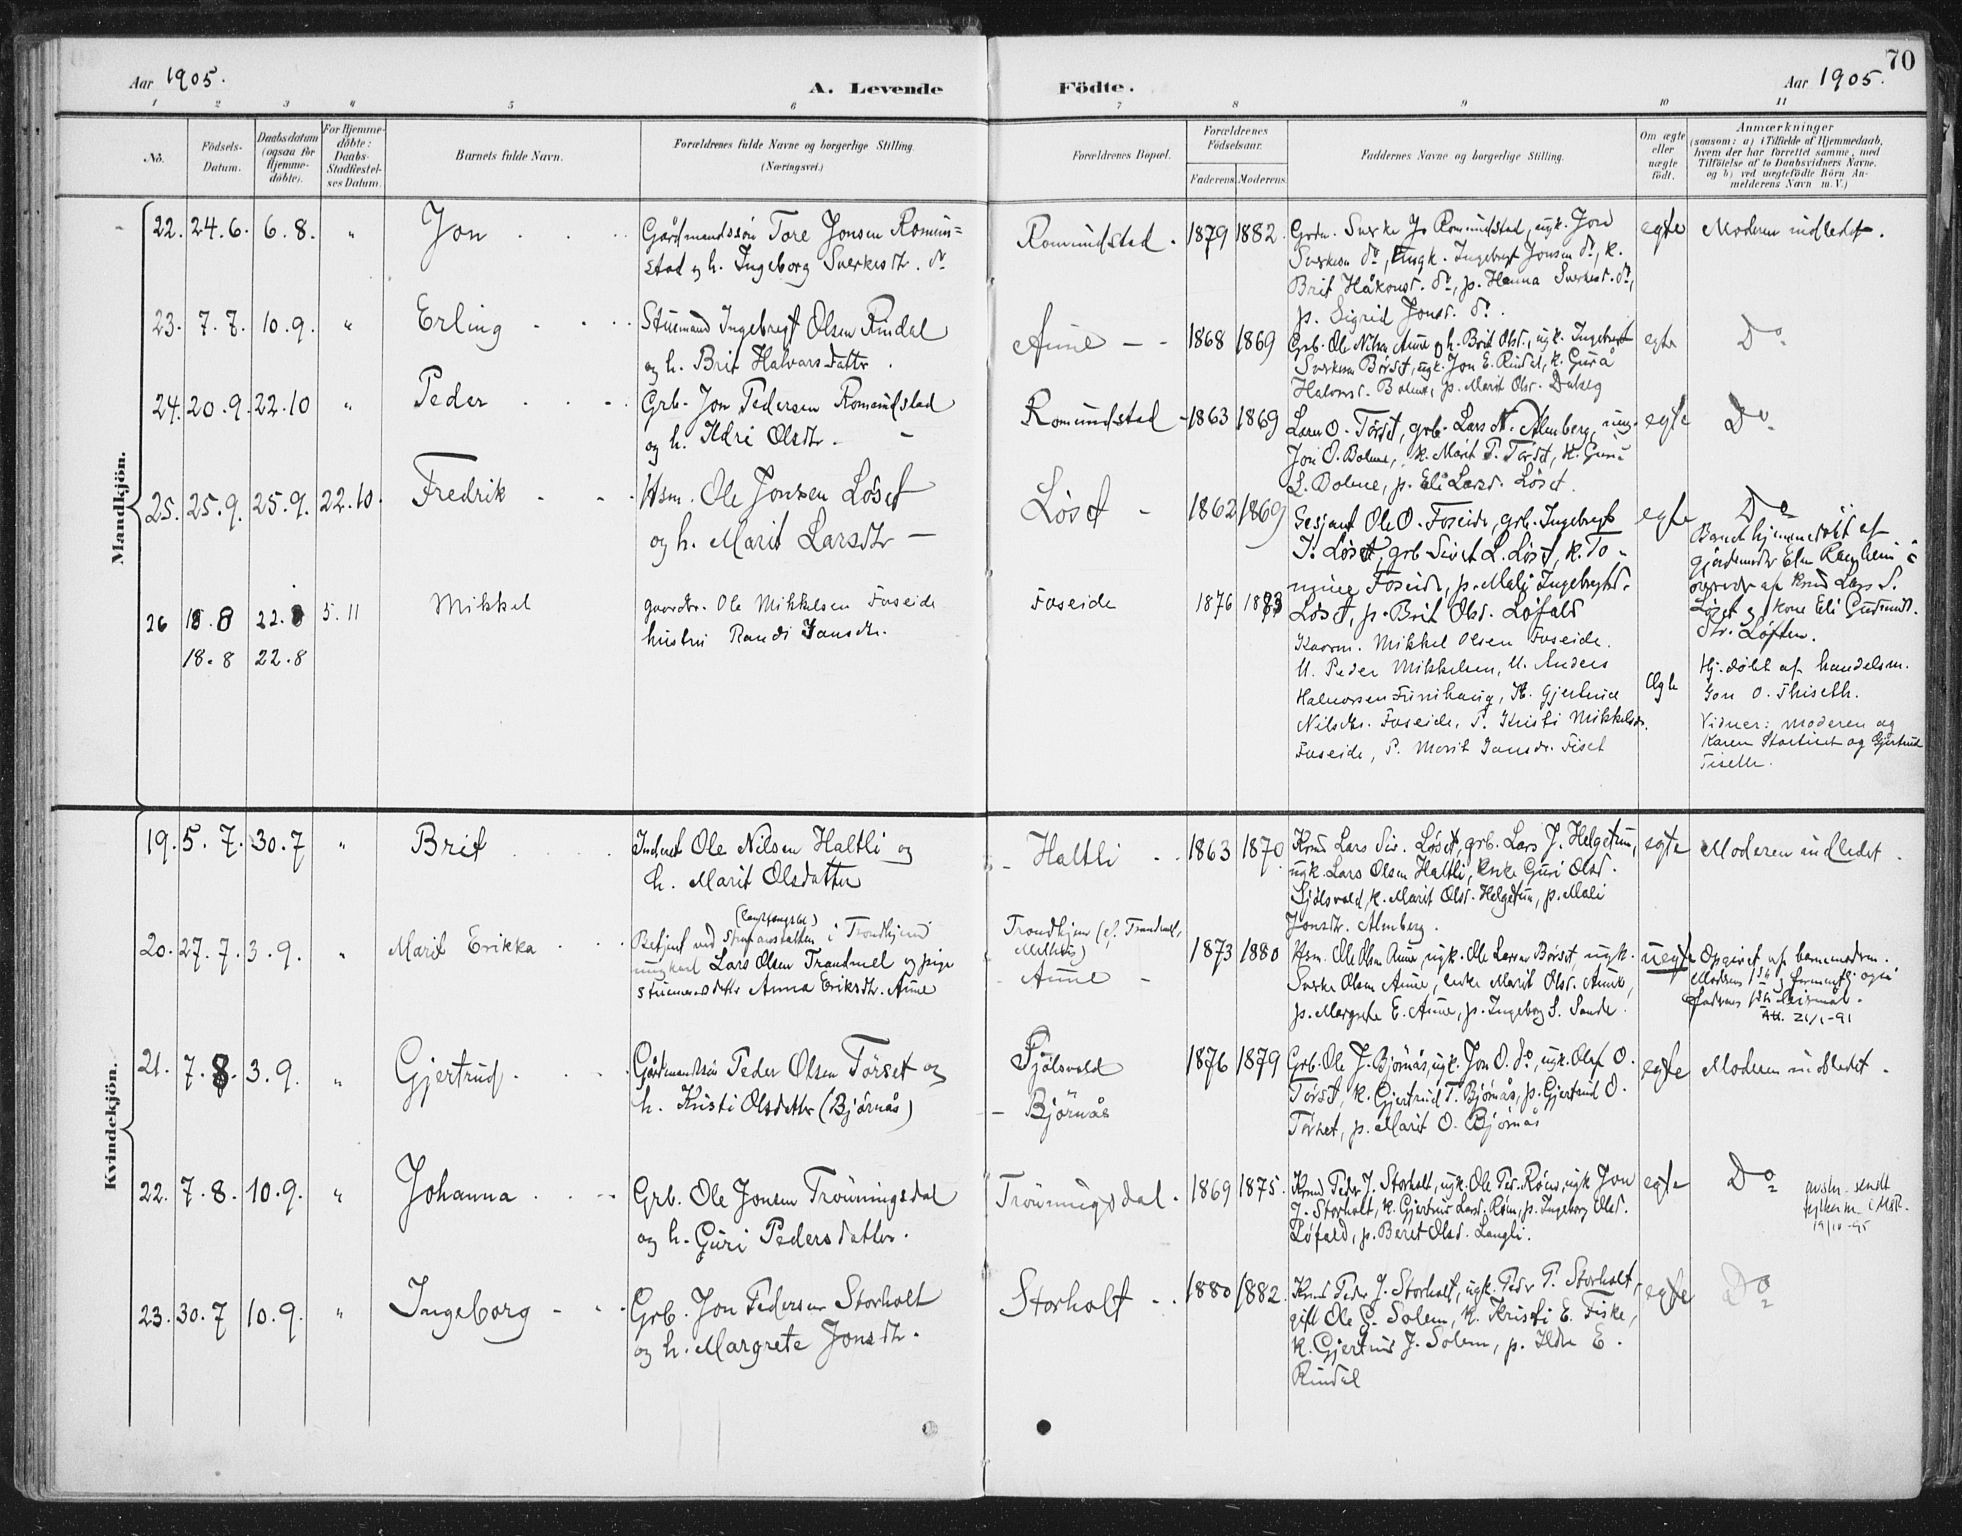 70
Aar 1905.
A. Levende Födte.
Aar 1905.
1 2 3 4 5 6 7 8 9 10 11
No.
Födsels-Datum.
Daabsdatum (ogsaa for Hjemme-døbte).
For Hjemme-døbte: Daabs-Stadfæstel-ses Datum.
Barnets fulde Navn.
Forældrenes fulde Navne og borgerlige Stilling.
(Næringsvei.)
Forældrenes Bopæl.
Forældrenes Födselsaar.
Faderens. Moderens.
Faddernes Navne og borgerlige Stilling.
Om ægte eller uægte födt.
Anmærkninger
(saasom: a) i Tilfælde af Hjemmedaab,
hvem der har forrettet samme, med
Tilföielse af to Daabsvidners Navne.
og b) ved uægtefödte Börn An-
melderens Navn m. V.)
Mandkjön.
22. 24.6. 6.8. " Jon
Gårdmandssøn Tore Jonsen Romun=
stad og h. Ingeborg Sverkesdtr. do
Romundstad. 1879 1882.
Grdr. Sverke Jo Romundstad, ugk. Jon
Sverkesen do, Ungk. Ingebrigt Jonsen do, k.
Brit Håkonsd. do, p. Hanna Sverkesd. do,
p. Sigrid Jonsd. do.
egte Moderen indledet.
23. 7.7. 10.9. " Erling
Stuemand Ingebregt Olsen Rindal
og h. Brit Halvarsdatter.
Aune 1868 1869
Grb. Ole Nilsen Aune og h. Brit Olsd., ugk. Ingebregt
Sverkesen Børset, ugk. Jon E. Rindal, k. Gurå
Halvorsd. Bolme, p. Marit Olsd. Dalseg
egte Do.
24. 20.9. 22.10 " Peder
Grb. Jon Pedersen Romundstad
og h. Ildri Olsdtr.
Romundstad 1863 1869
Lars O. Tørset, grb. Lars N. Almberg, ung-
Jon O. Bolme, k. Marit P. Tørset, k. Guri
L. Bolme, p. Eli Larsd. Løset
egte Do.
25. 25.9. 25.9. 22.10. Fredrik
Hsm. Ole Jonsen Løset
og h. Marit Larsdtr
Løset 1862 1869
Sesjant Ole O. Foseide, grb. Ingebregt
T. Løset, grb Sivet L. Løset, k. To-
Foseide, p. Mali Ingebregtsd.
Løset, p. Brit Olsd. Løfald
egte Do
Barnet hjemmedøbt af
gjordemoder Elen Ramheim i
overvær af Kmd Lars S.
Løset og kone Eli Gudmunds-
dtr. Løften.
26 18.8 22.8 5.11 Mikkel
18.8 22.8
gaardbr. Ole Mikkelsen Foseide
hustru Randi Jansdtr.
Foseide 1876 1883
Kaarm. Mikkel Olsen Foseide.
U. Peder Mikkelsen, U. Anders
Halvorsen Funihaug, K. Gjertrud
Nilsdtr. Foseide, P. Kristi Mikkelsdtr.
Foseide, P. Marit Jansdr. Fiset
Ægte
Hj. døbt af handelsm.
Jon O. Thiseth.
Vidner: moderen og
Karen og Gjertrud
Tiseth.
Kvindekjön.
19. 5.7. 30.7 " Brit
Inderst Ole Nilsen Haltli og
h. Marit Olsdatter
Haltli 1863 1870
Kmd Lars Siv. Løset, grb. Lars J. Helgetun,
ugk. Lars Olsen Haltli, Enke Guri Olsd.
Sjølsvold, k. Marit Olsd. Helgetun, p. Mali
Jonsdtr. Almberg.
egte Moderen indledet.
20. 27.7. 3.9. " Marit Erikka
(landsfængslet)
Betjent ved Strafanstalten i Trondhjem
ungkarl Lars Olsen Trandmel og pige
stuemansdatter Anna Eriksdtr. Aune
Trondhjem (ef. Trandmel,
Meldal)
Aune 1873 1880
Hsm. Ole Olsen Aune, ugk. Ole Larsen Børset, ugk.
Sverke Olsen Aune, enke Marit Olsd. Aune,
p. Margrete E. Aune, p. Ingeborg S. Sande.
uegte Opgivet af barnemoderen.
Moderens 1ste og formentlig også
faderens 1ste leiermål.
Att. 21/1-91
21. 7.8. 3.9. " Gjertrud
Gårdmandssøn Peder Olsen Tørset og
h. Kristi Olsdatter (Bjørnås)
Sjølsvold
Bjørnås
1876 1879
Grb. Ole J. Bjørnås, ugk. Jon O. do, ugk. Oluf O.
Tørset, k. Gjertrud T. Bjørnås, p. Gjertrud O.
Tørset, p. Marit O. Bjørnås
egte Moderen indledet.
22. 7.8. 10.9. " Johanna
Grb. Ole Jonsen Trønningsdal
og h. Guri Pedersdatter.
Trønningsdal. 1869 1875.
Kmd Peder J. Storholt, ugk. Ole Ped. Røen, ugk Jon
J. Storholt, k. Gjertrud Larsd. Røen, p. Ingeborg Olsd.
Løfald, p. Beret Olsd. Langli.
egte Do
avskr. sendt
fylkesm. i M&R.
19/10-95
23. 30.7 10.9. " Ingeborg
Grb. Jon Pedersen Storholt
og h. Margrete Jonsdtr.
Storholt 1880 1882.
Kmd Peder J. Storholt, ugk. Peder P. Storholt,
gift Ole G. Solem, k. Kristi E. Fiske,
k. Gjertrud J. Solem, p. Ildri E.
Rindal
egte Do